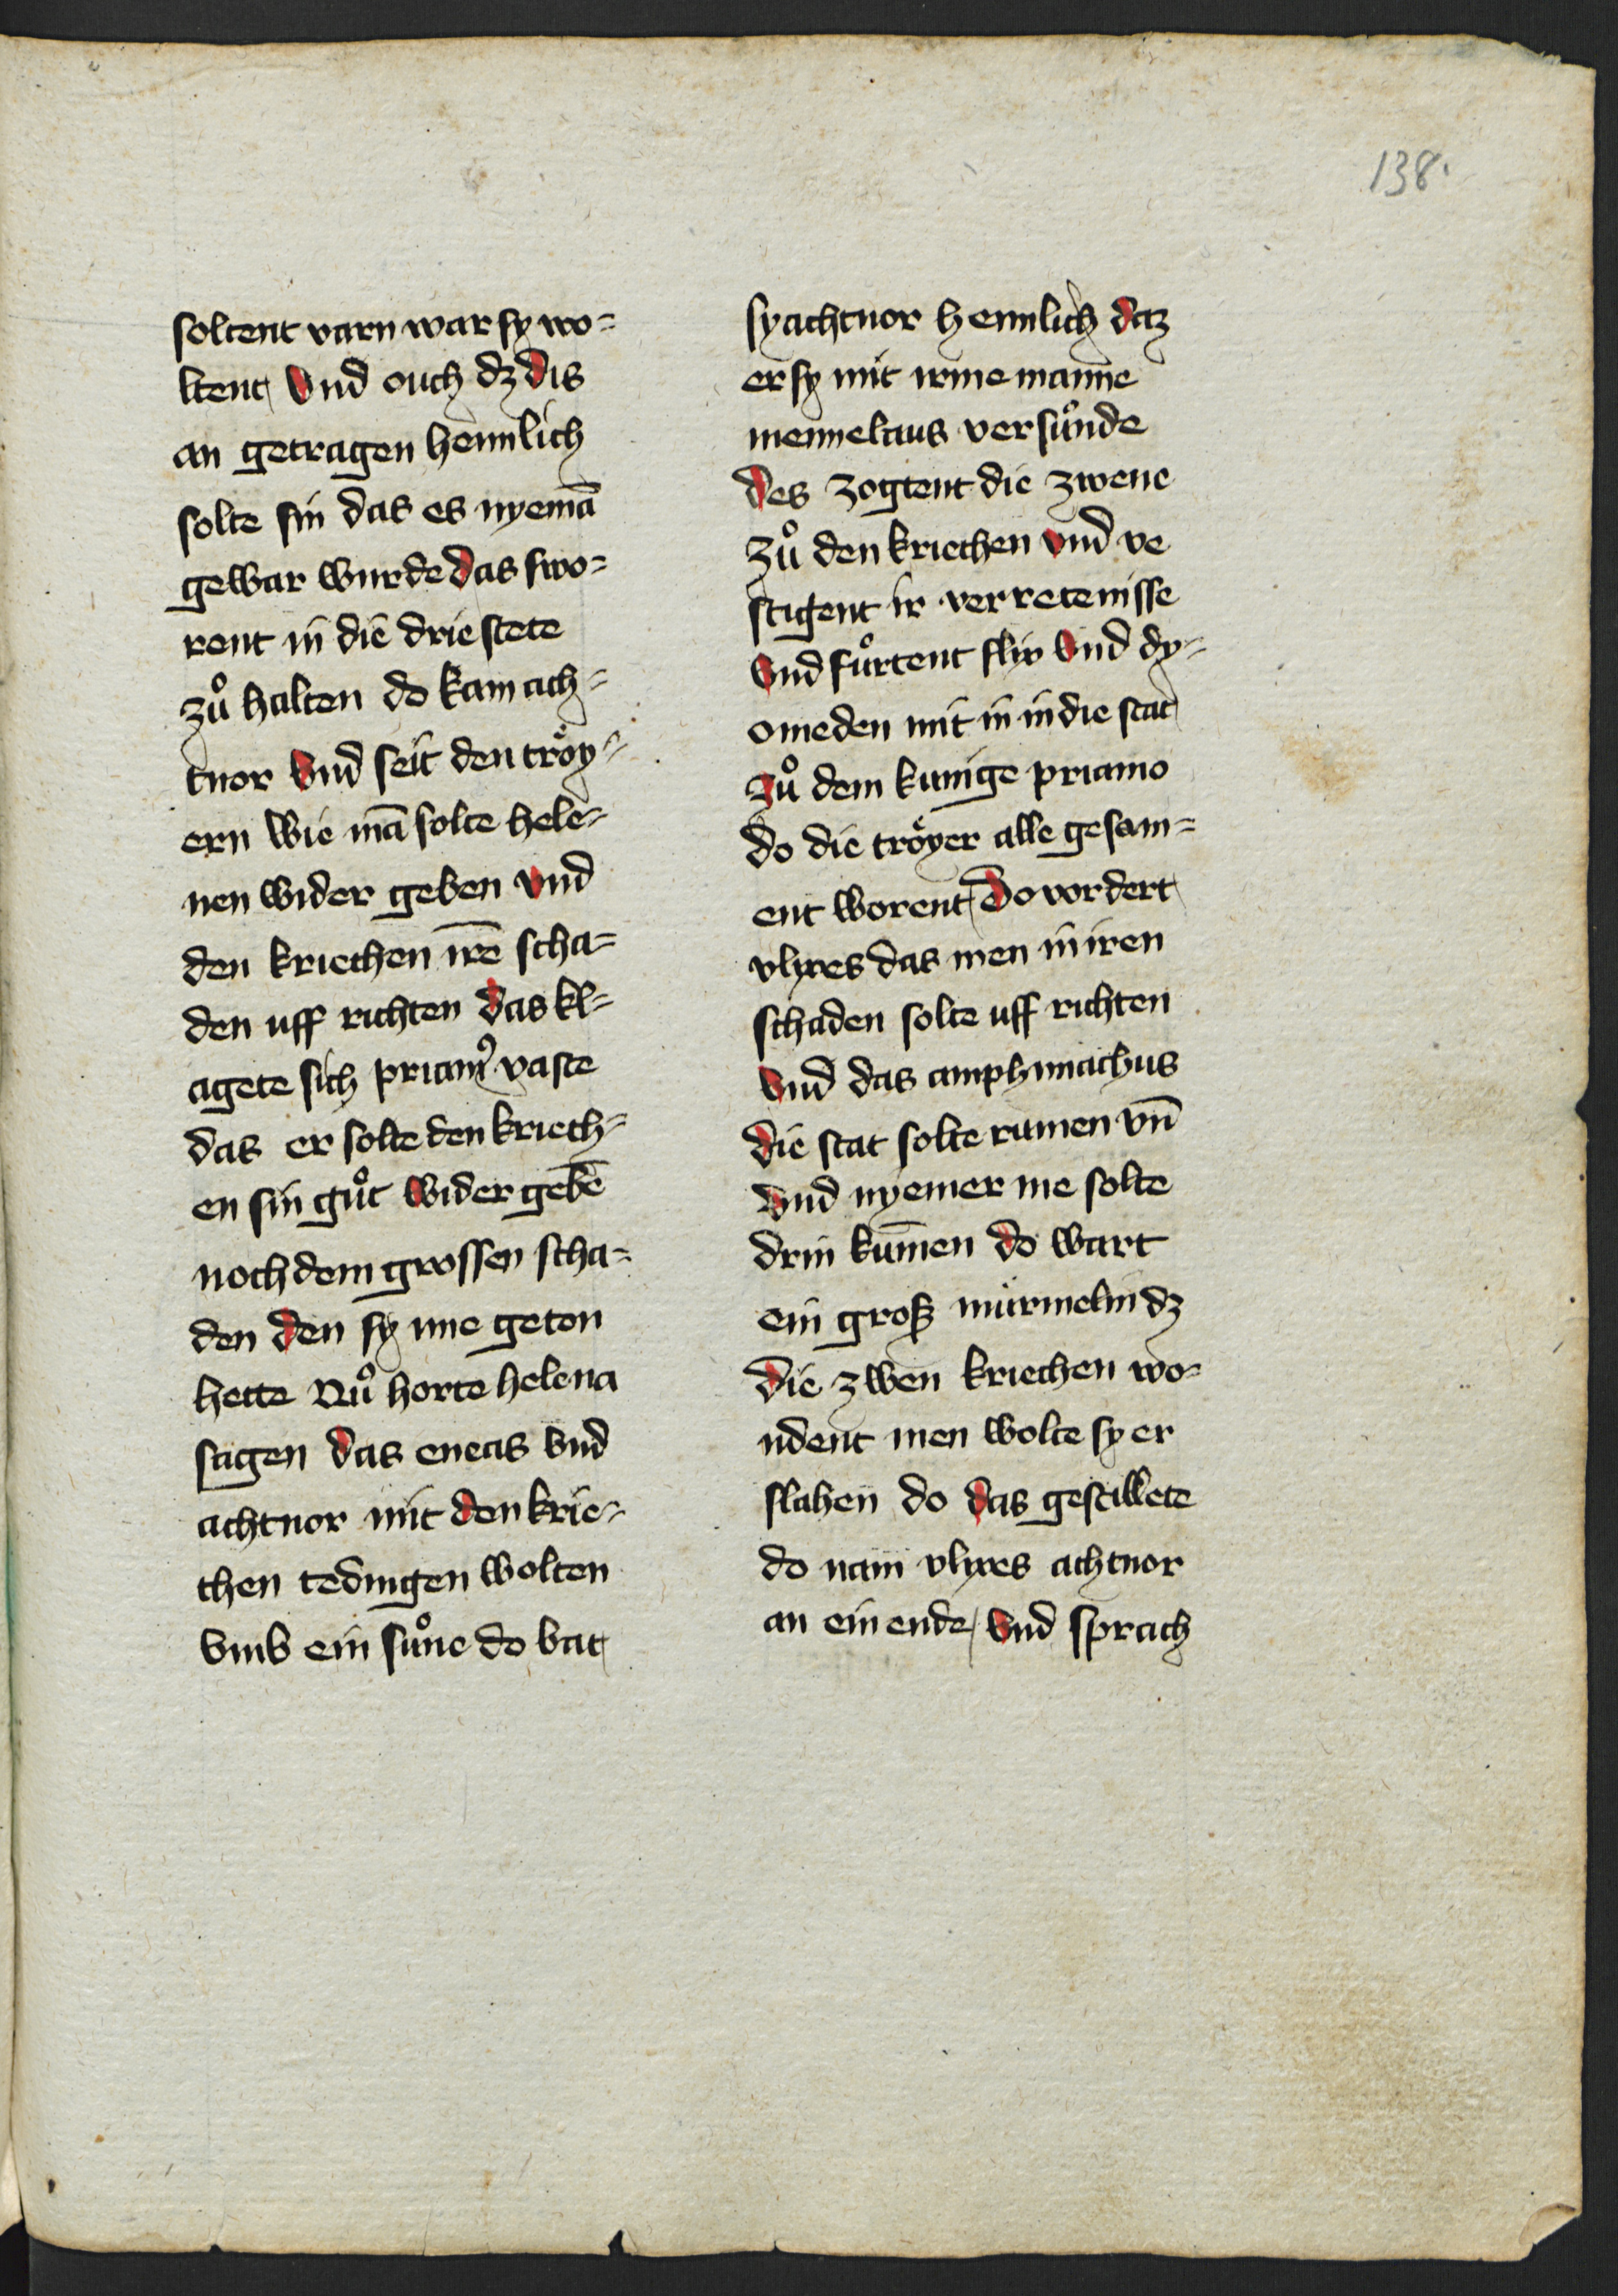 138.
soltent varn war sy wo=
ltent Vnd ouch dz dis
an getragen hemlich
solte sin das es nyemā
gewar wurde das swo=
rent in die drie stete
zuͦ halten do kam ach=
tnor Vnd seit den troͤy=
ern wie mā solte hele=
nen wider geben vnd
den kriechen irē scha=
den uff richten das kl=
agete sich priamꝰ vaste
das er solte den kriech=
en sin guͦt wider gebē
noch dem grossen scha=
den den sy ime geton
hette Nuͦ horte helena
sagen das eneas vnd
achtnor mit den krie=
chen tedingen wolten
vmb ein suͦne do bat
sy achtnor hemlich daz
er sy mit irme manne
mennelaus versuͦnde
des zogtent die zwene
zuͦ den kriechen vnd ve
stigent ir verretenisse
Vnd fuͦrtent flix Vnd dy=
omeden mit in in die stat
zuͦ dem kunige priamo
do die troͤyer alle gesam=
ent worent Do vordert
vlixes das men in iren
schaden solte uff richten
Vnd das amphimachus
die stat solte rumen vn̄
vnd nyemer me solte
drin kūmen do wart
ein groß murmelin dz
die zwen kriechen wo=
ndent men wolte sy er
slahen do das gestillete
do nam vlixes achtnor
an ein ende Vnd sprach